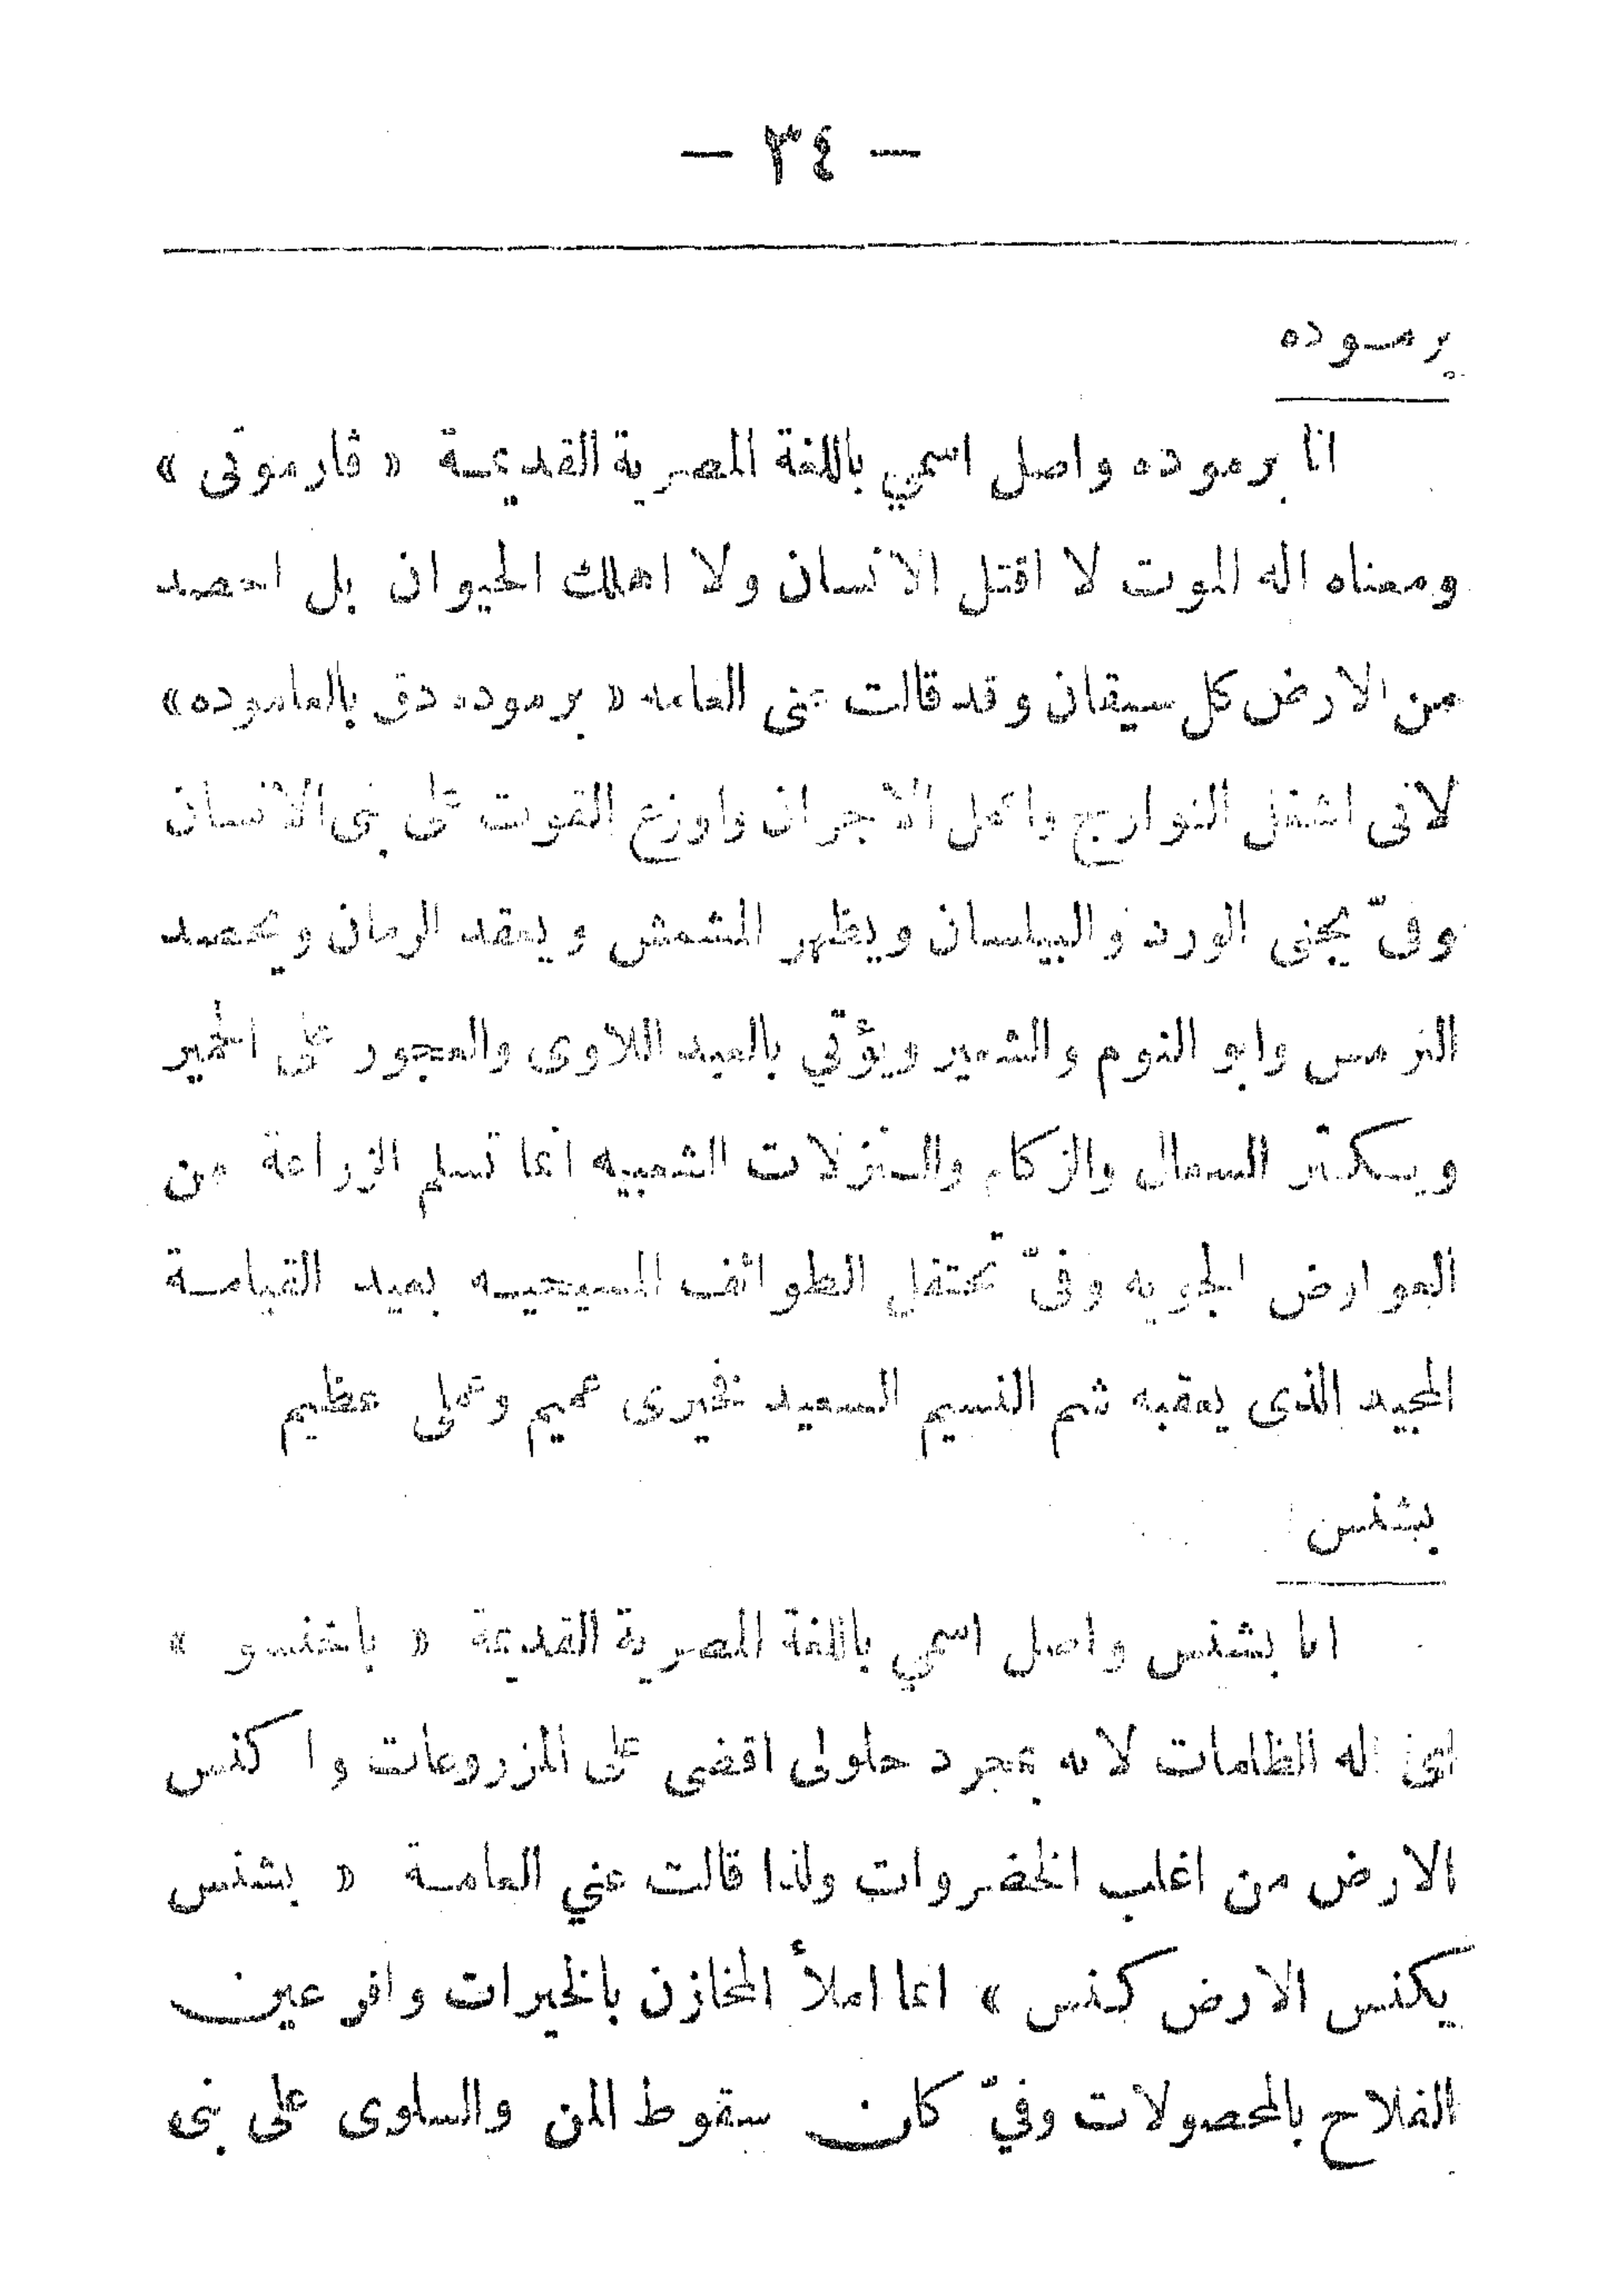 — ٣٤ —
برموده
انا برموده واصل اسمي باللغة المصرية القديمة « فارموتى »
ومعناه اله الموت لا اقتل الانسان ولا اهلك الحيوان بل احصد
من الارض كل سيقان وقد قالت عنى العامه « برموده دق بالعاموده»
لانى اشغل النوارج واكمل الاجران واوزع القوت على بنى الانسان
وفىّ يجنى الورد والبيلسان ويظهر المشمش ويعقد الرمان ويحصد
الترمس وابو النوم والشعير ويؤتي بالعبد اللاوى والعجور على الحمير
ويكثر السعال والزكام والنزلات الشعبيه انما تسلم الزراعة من
العوارض الجويه وفىّ تحتفل الطوائف المسيحيه بعيد القيامة
المجيد الذى يعقبه شم النسيم السعيد فخيرى عميم وعملى عظيم
بشنس
انا بشنس واصل اسمي باللغة المصرية القديمة « باخنسو »
اى اله الظلمات لانه بمجرد حلولى اقضى على المزروعات واكنس
الارض من اغلب الخضروات ولذا قالت عني العامة « بشنس
يكنس الارض كنس » انما املأ المخازن بالخيرات واقر عين
الفلاح بالمحصولات وفيّ كان سقوط المن والسلوى على بنى